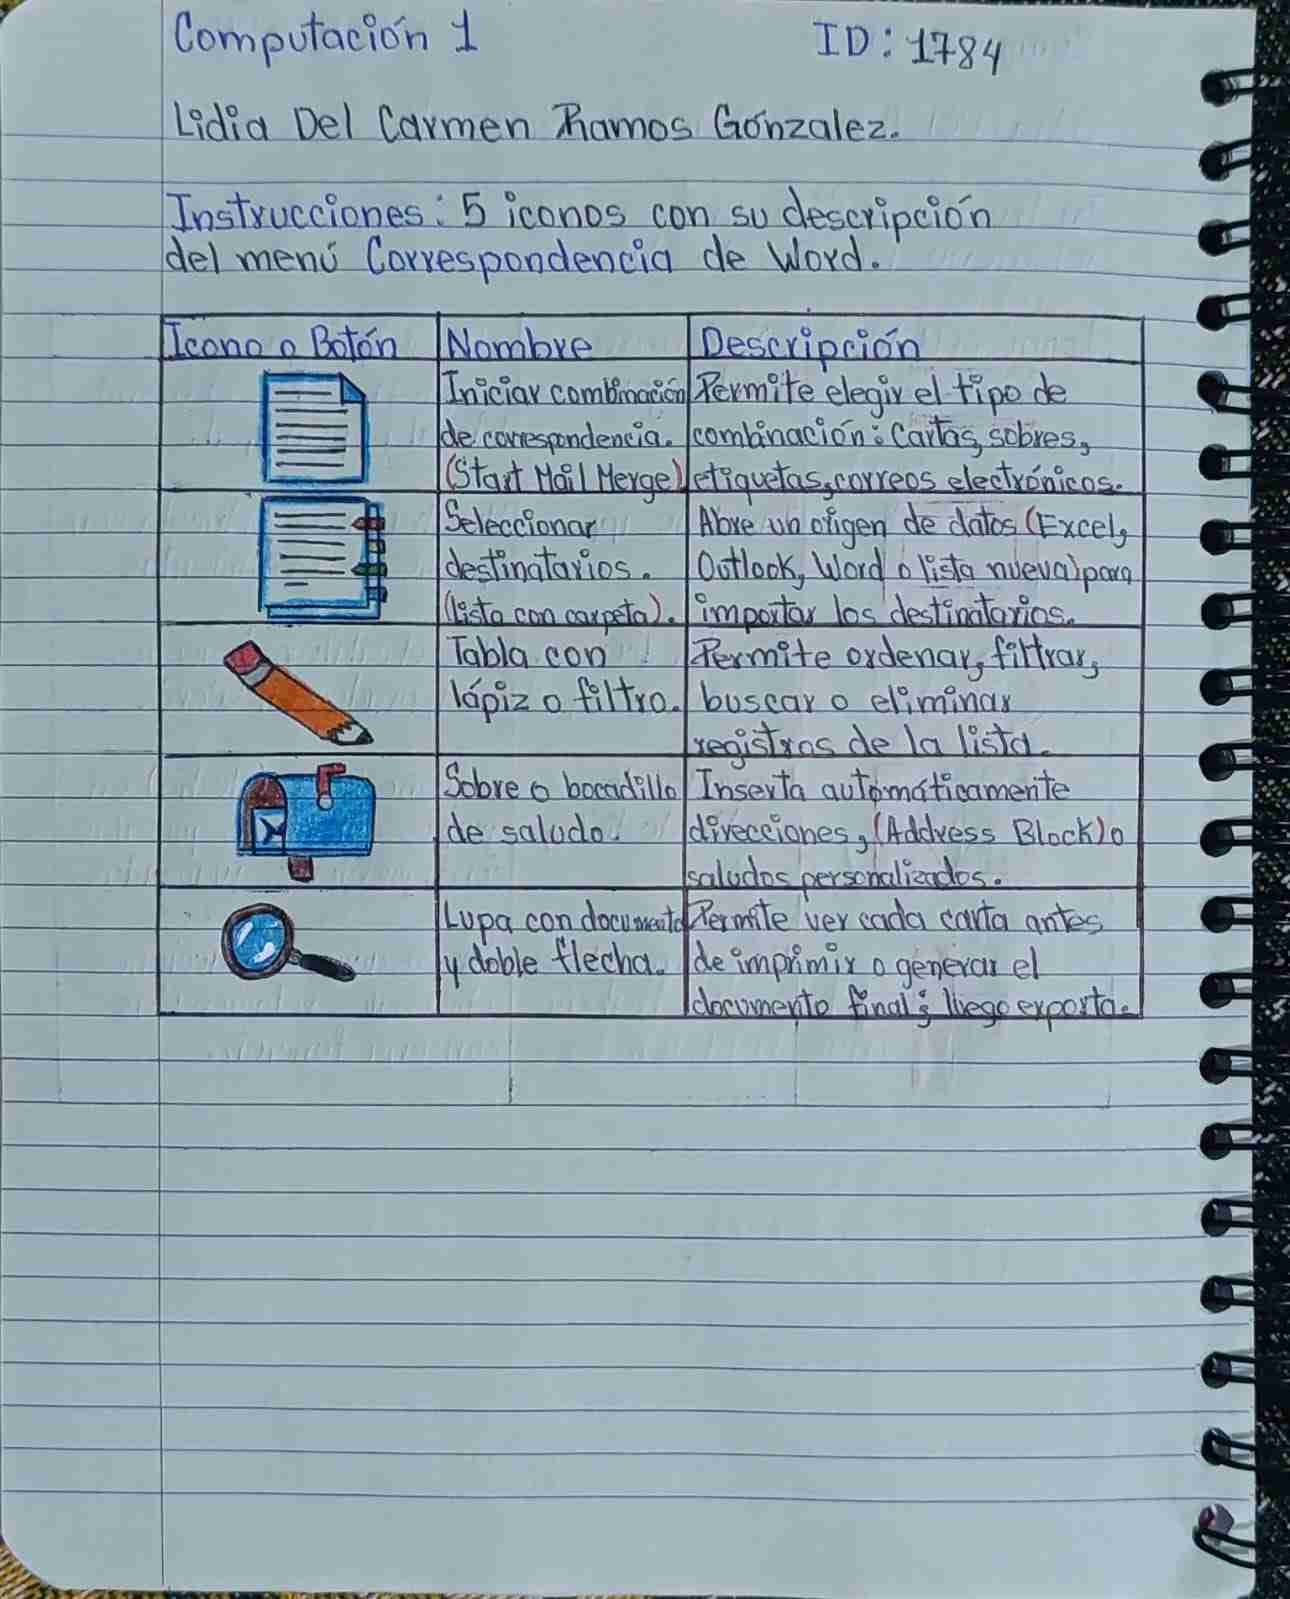 Computación 1
ID: 1784
Lidia Del Carmen Ramos Gónzalez.
Instrucciones: 5 iconos con su descripción
del menú Correspondencia de Word.
Icono o Botón
Nombre
Descripción
Iniciar combinación
de correspondencia.
(Start Mail Merge)
Permite elegir el tipo de
combinación: Cartas, sobres,
etiquetas, correos electrónicos.
Seleccionar
destinatarios.
(lista con carpeta).
Abre un origen de datos (Excel,
Outlook, Word o lista nueva) para
importar los destinatarios.
Tabla con
lápiz o filtro.
Permite ordenar, filtrar,
buscar o eliminar
registros de la lista.
Sobre o bocadillo
de saludo.
Inserta automáticamente
direcciones, (Address Block) o
saludos personalizados.
Lupa con documento
y doble flecha.
Permite ver cada carta antes
de imprimir o generar el
documento final; luego exporta.